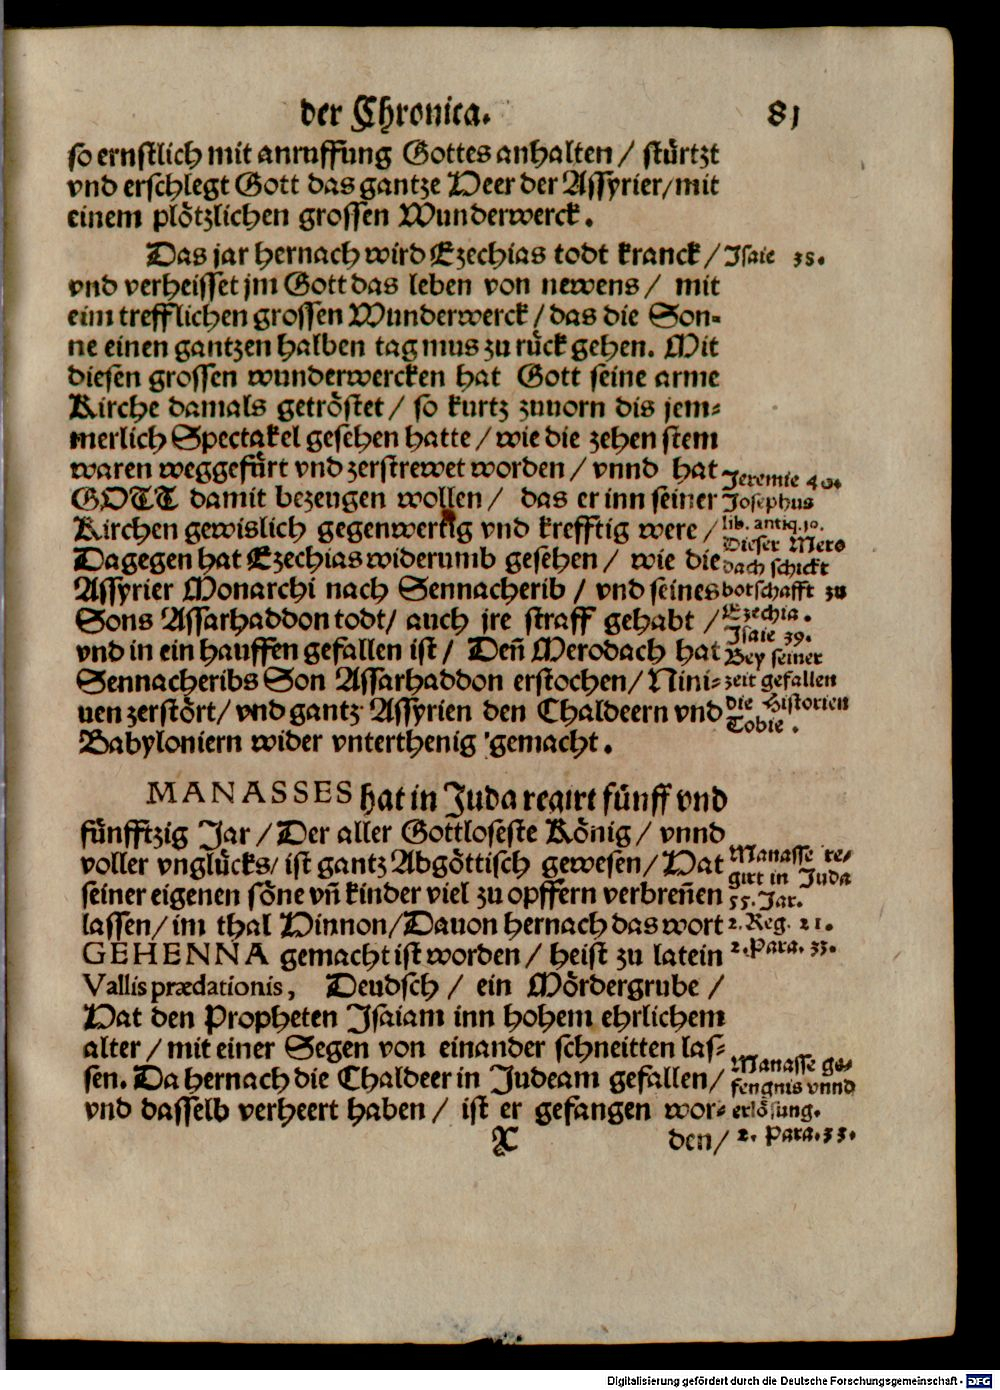 der Chronica. 81
so ernstlich mit anruffung Gottes anhalten / stürtzt
vnd erschlegt Gott das gantze Heer der Assyrier / mit
einem plötzlichen grossen Wunderwerck.
Das jar hernach wird Ezechias todt kranck /
vnd verheisset jm Gott das leben von newens / mit
eim trefflichen grossen Wunderwerck / das die Son-
ne einen gantzen halben tag mus zu rück gehen. Mit
diesen grossen wunderwercken hat Gott seine arme
Kirche damals getröstet / so kurtz zuuorn dis jem-
merlich Spectakel gesehen hatte / wie die zehen stem
waren weggefürt vnd zerstrewet worden / vnnd hat
GOTT damit bezeugen wollen / das er inn seiner
Kirchen gewislich gegenwertig vnd krefftig were /
Dagegen hat Ezechias widerumb gesehen / wie die
Assyrier Monarchi nach Sennacherib / vnd seines
Sons Assarhaddon todt / auch jre straff gehabt /
vnd in ein hauffen gefallen ist / Deñ Merodach hat
Sennacheribs Son Assarhaddon erstochen / Nini-
uen zerstört / vnd gantz Assyrien den Chaldeern vnd
Babyloniern wider vnterthenig gemacht.
Isaie 38.
Jeremie 40.
Josephus
lib. antiq. 10.
Dieser Mero
dach schickt
botschafft zu
Ezechia.
Isaie 39.
Bey seiner
zeit gefallen
die Historien
Tobie.
MANASSES hat in Juda regirt fünff vnd
fünfftzig Jar / Der aller Gottloseste König / vnnd
voller vnglücks / ist gantz Abgöttisch gewesen / Hat
seiner eigenen söne vñ kinder viel zu opffern verbreñen
lassen / im thal Hinnon / Dauon hernach das wort
GEHENNA gemacht ist worden / heist zu latein
Vallis prædationis, Deudsch / ein Mördergrube /
Hat den Propheten Isaiam inn hohem ehrlichem
alter / mit einer Segen von einander schneitten las-
sen. Da hernach die Chaldeer in Judeam gefallen /
vnd dasselb verheert haben / ist er gefangen wor-
Manasse re-
girt in Juda
55. Jar.
2. Reg. 21.
2. Para. 33.
Manasse ge-
fengnis vnnd
erlösung.
2. Para. 33.
X den /